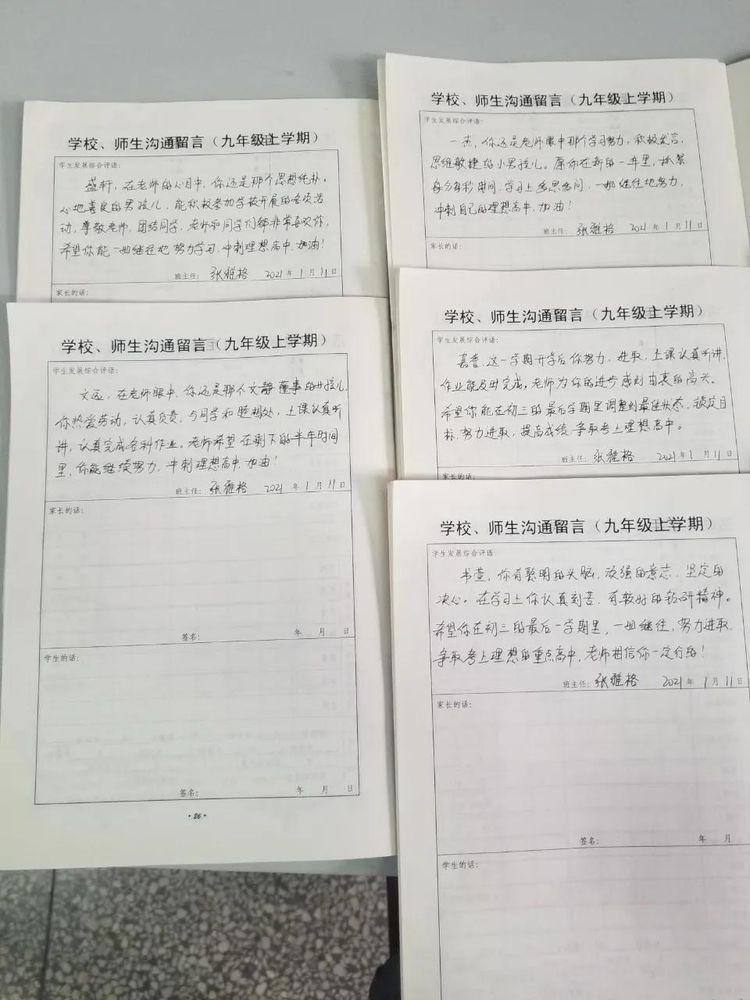 学校、师生沟通留言（九年级上学期）
学生发展综合评语：
盛轩，在老师的心目中，你还是那个思想纯朴、
心地善良的男孩儿，能积极参加学校开展的各项活
动，尊敬老师，团结同学，老师和同学们都非常喜欢你，
希望你能一如继往地努力学习，冲刺理想高中，加油！
班主任：张雅格 2021年1月11日
家长的话：
学校、师生沟通留言（九年级上学期）
学生发展综合评语：
文远，在老师眼中，你还是那个文静懂事的女孩儿，
你热爱劳动，认真负责，与同学和睦相处，上课认真听
讲，认真完成各科作业，老师希望在剩下的半年时间
里，你能继续努力，冲刺理想高中，加油！
班主任：张雅格 2021年1月11日
家长的话：
签名： 年 月 日
学生的话：
签名： 年 月 日
·86·
学校、师生沟通留言（九年级上学期）
学生发展综合评语：
一杰，你还是老师眼中那个学习努力，积极发言，
思维敏捷的小男孩儿。愿你在新的一年里，抓紧
每分每秒时间，学习上多思多问，一如继往地努力，
冲刺自己的理想高中，加油！
班主任：张雅格 2021年1月11日
家长的话：
学校、师生沟通留言（九年级上学期）
学生发展综合评语：
嘉蕾，这一学期开学后你努力、进取，上课认真听讲，
作业能及时完成，老师为你的进步感到由衷的高兴。
希望你能在初三的最后学期里调整到最佳状态，锁定目
标，努力进取，提高成绩，争取考上理想高中。
班主任：张雅格 2021年1月11日
学校、师生沟通留言（九年级上学期）
学生发展综合评语：
书萱，你有聪明的头脑，顽强的意志，坚定的
决心。在学习上你认真刻苦，有较好的钻研精神。
希望你在初三的最后一学期里，一如继往，努力进取，
争取考上理想的重点高中，老师相信你一定行的！
班主任：张雅格 2021年1月11日
家长的话：
签名： 年 月
学生的话：